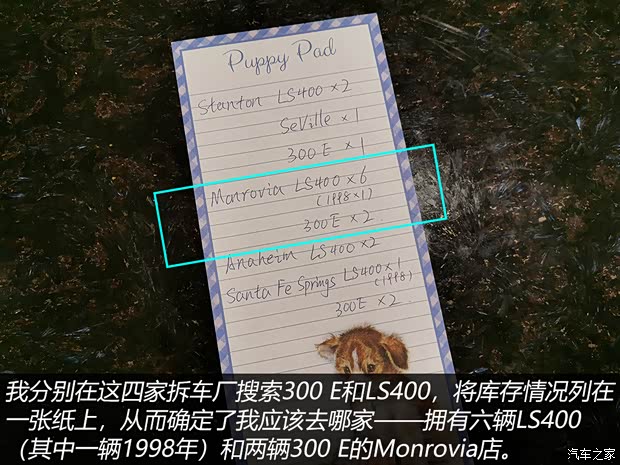 Puppy Pad
Stanton LS400 ×2
SeVille ×1
300 E ×1
Monrovia LS400 ×6
(1998×1)
300E ×2
Anaheim LS400 ×2
Santa Fe Springs LS400×1
(1998)
300E ×2
我分别在这四家拆车厂搜索300 E和LS400，将库存情况列在
一张纸上，从而确定了我应该去哪家——拥有六辆LS400
（其中一辆1998年）和两辆300 E的Monrovia店。
汽车之家